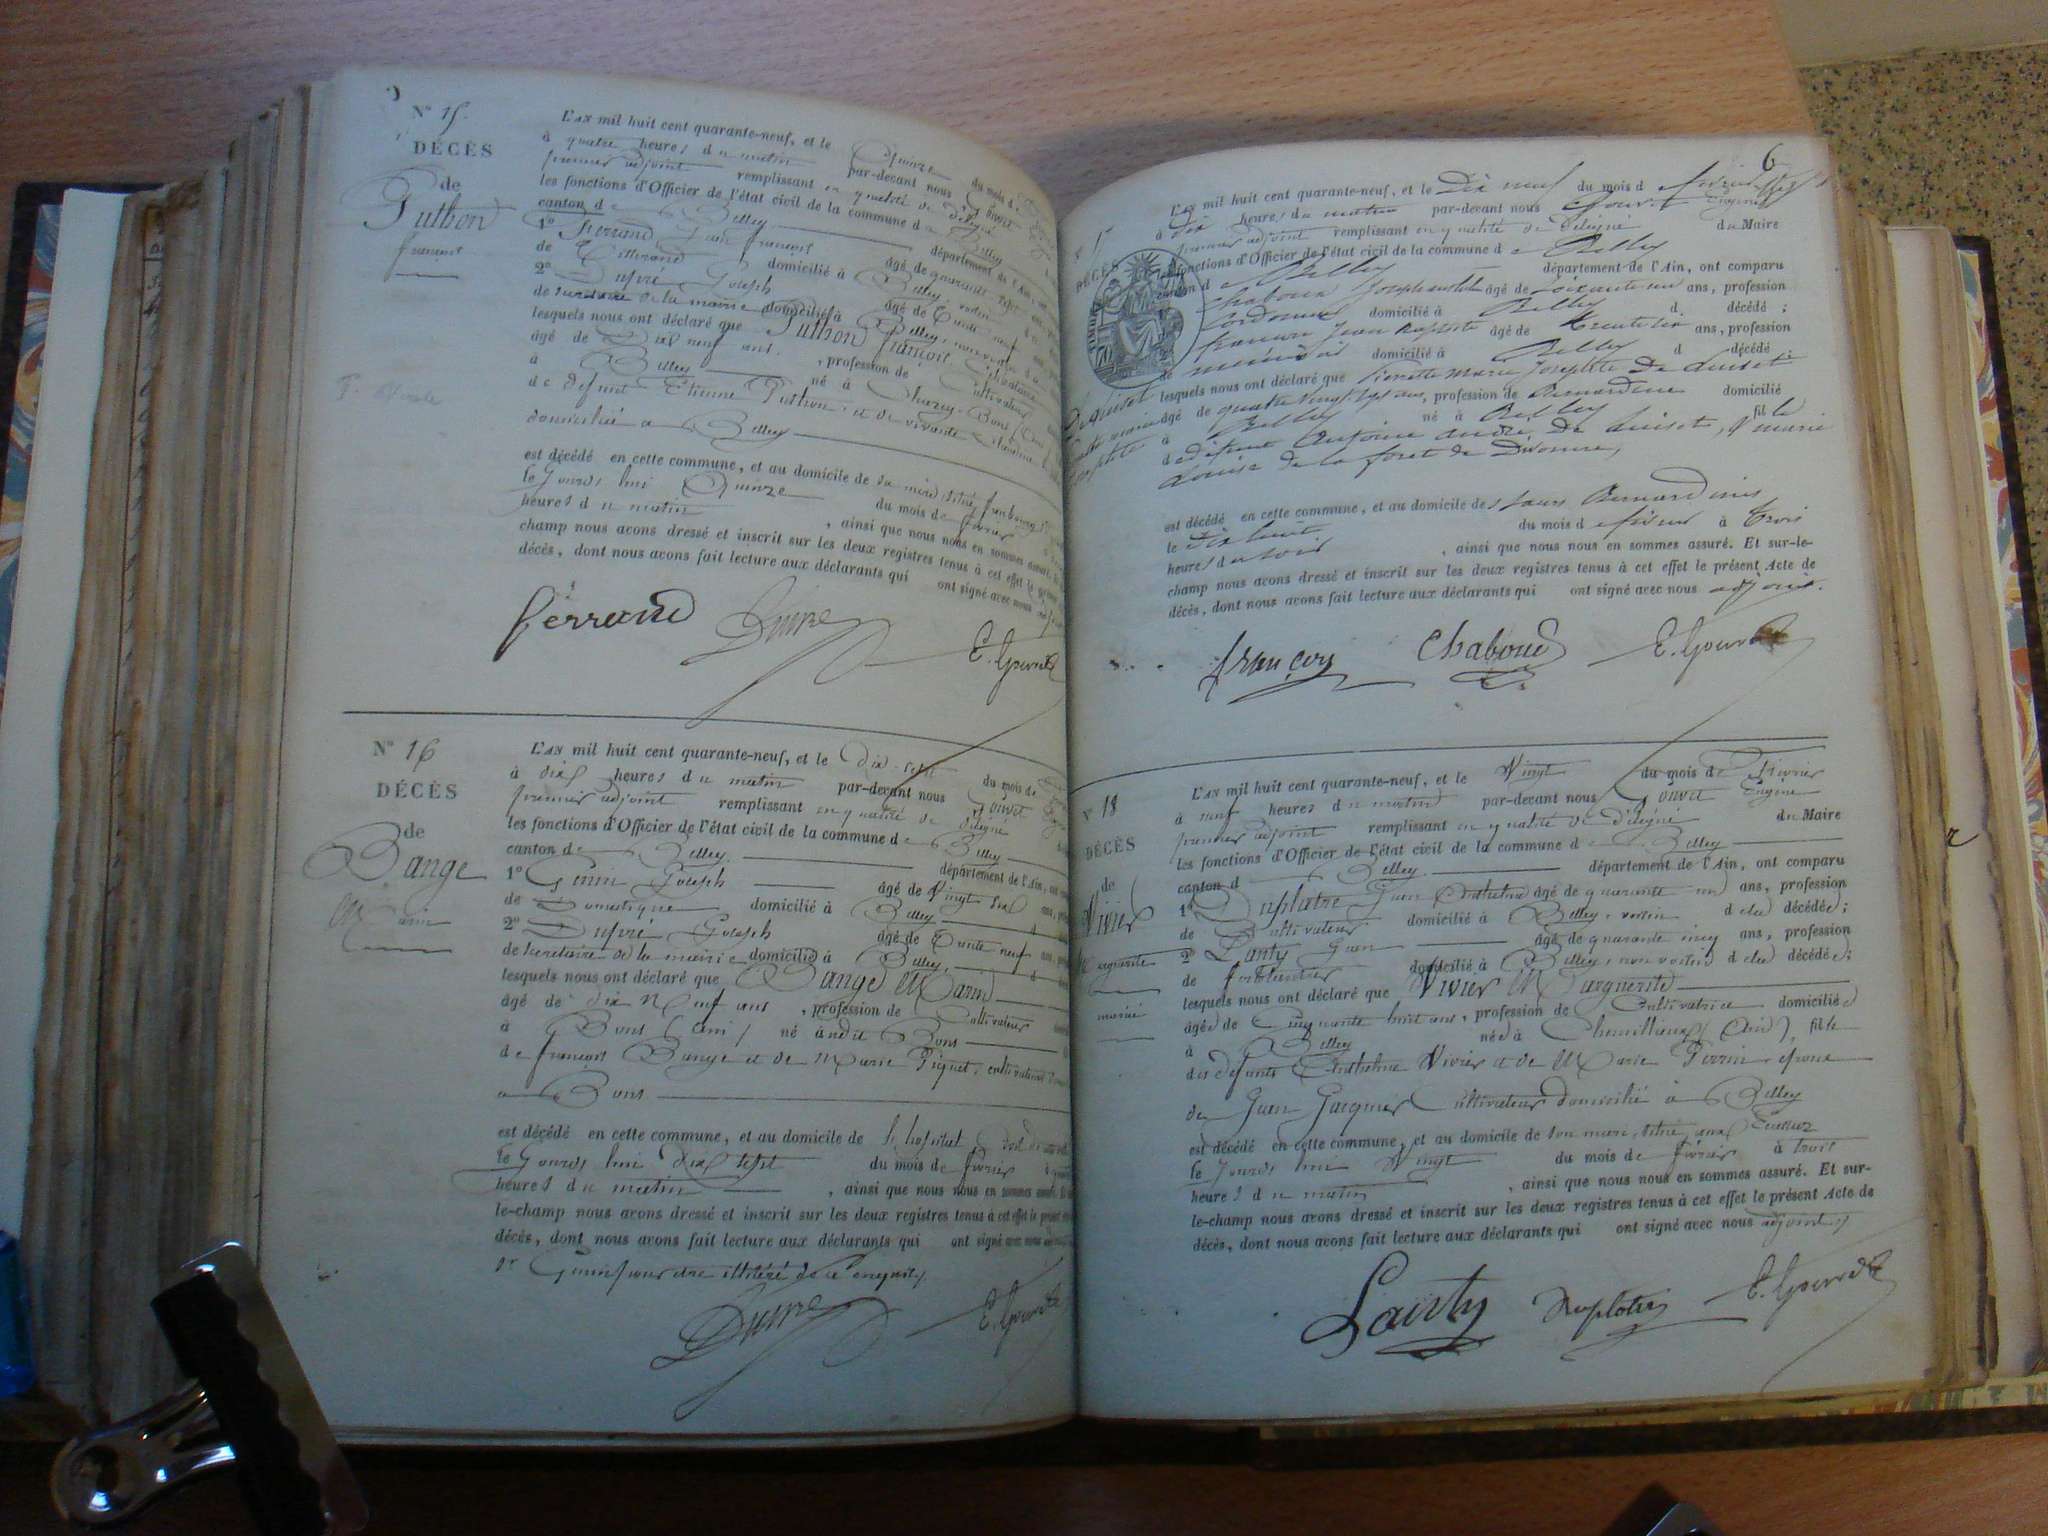 N° 15.
DÉCÈS
de
Puthon
françois
L'AN mil huit cent quarante-neuf, et le Quinze du mois de
à quatre heures du matin par-devant nous Gouvret
premier adjoint remplissant en qualité de délégué
les fonctions d'Officier de l'état civil de la commune de Belley
canton de Belley département de l'Ain,
1° Ferrand Jean françois âgé de quarante sept
de domicilié à Belley, voisin
2° Dupré Joseph âgé de Trente neuf
de secrétaire de la mairie domicilié à Belley, non voisin
lesquels nous ont déclaré que Puthon françois
âgé de Dix neuf ans, profession de Cultivateur
à Belley né à Charey-Bons
de défunt Etienne Puthon et de vivante
domiciliée à Belley
est décédé en cette commune, et au domicile de sa mère, situé faubourg
le Jourd'hui Quinze du mois de février
heures du matin, ainsi que nous nous en sommes assuré.
champ nous avons dressé et inscrit sur les deux registres tenus à cet effet le
décès, dont nous avons fait lecture aux déclarants qui ont signé avec nous
ferrand Dupré E. Gouvret
N° 16
DÉCÈS
de
Bange
Marin
L'AN mil huit cent quarante-neuf, et le dix-sept du mois de
à dix heures du matin par-devant nous Gouvret
premier adjoint remplissant en qualité de délégué
les fonctions d'Officier de l'état civil de la commune de Belley
canton de Belley département de l'Ain, ont
1° Genin Joseph âgé de Vingt six ans,
de Domestique domicilié à Belley
2° Dupré Joseph âgé de Trente neuf ans,
de Secrétaire de la mairie domicilié à Belley
lesquels nous ont déclaré que Bange Marin
âgé de dix Neuf ans, profession de Cultivateur
à Bons (ain) né audit Bons
de françois Bange et de Marie Piquet, cultivateurs
à Bons
est décédé en cette commune, et au domicile de l'hopital
le Jourd'hui dix sept du mois de février
heures du matin, ainsi que nous nous en sommes assuré.
le-champ nous avons dressé et inscrit sur les deux registres tenus à cet effet le présent
décès, dont nous avons fait lecture aux déclarants qui ont signé avec nous
Genin pour être illitéré de ce enquis
Dupré E. Gouvret
6
DÉCÈS
L'AN mil huit cent quarante-neuf, et le Dix neuf du mois de février
à Dix heures du matin par-devant nous Gouvret Eugène
premier adjoint remplissant en qualité de Délégué du Maire
les fonctions d'Officier de l'état civil de la commune de Belley
canton de Belley département de l'Ain, ont comparu
Chaboud Joseph âgé de soixante un ans, profession
Cordonnier domicilié à Belley d décédé;
françon Jean Baptiste âgé de trente six ans, profession
de menuisier domicilié à Belley d décédé;
lesquels nous ont déclaré que Pierrette Marie Josephte De Luiset
âgé de quatre vingt sept ans, profession de Bernardine domicilié
à Belley né à Belley fille
de défunt Antoine andré De Luiset, & marie
Louise de la foret de Divonne,
est décédé en cette commune, et au domicile des sœurs Bernardines
le dix huit du mois de février à Trois
heures du soir, ainsi que nous nous en sommes assuré. Et sur-le-
champ nous avons dressé et inscrit sur les deux registres tenus à cet effet le présent Acte de
décès, dont nous avons fait lecture aux déclarants qui ont signé avec nous adjoint.
françon Chaboud E. Gouvret
N° 18
DÉCÈS
de
Vivier
Marguerite
mariée
L'AN mil huit cent quarante-neuf, et le Vingt du mois de Février
à neuf heures du matin par-devant nous Gouvret Eugène
premier adjoint remplissant en qualité de délégué du Maire
les fonctions d'Officier de l'état civil de la commune de Belley
canton d Belley département de l'Ain, ont comparu
1° Duplatre Jean Anthelme âgé de quarante un ans, profession
de Cultivateur domicilié à Belley, voisin d cla décédée;
2° Lanty Jean âgé de quarante cinq ans, profession
de ferblantier domicilié à Belley, non voisin d cla décédée;
lesquels nous ont déclaré que Vivier Marguerite
âgée de Cinquante huit ans, profession de Cultivatrice domiciliée
à Belley née à (Ain), fille
des défunts Anthelme Vivier et de Marie Perrin, épouse
de Jean Jacquier Cultivateur domicilié à Belley
est décédé en cette commune, et au domicile de son mari, situé aux
le Jourd'hui Vingt du mois de février à trois
heures du matin, ainsi que nous nous en sommes assuré. Et sur-
le-champ nous avons dressé et inscrit sur les deux registres tenus à cet effet le présent Acte de
décès, dont nous avons fait lecture aux déclarants qui ont signé avec nous adjoint
Lanty Duplatre E. Gouvret